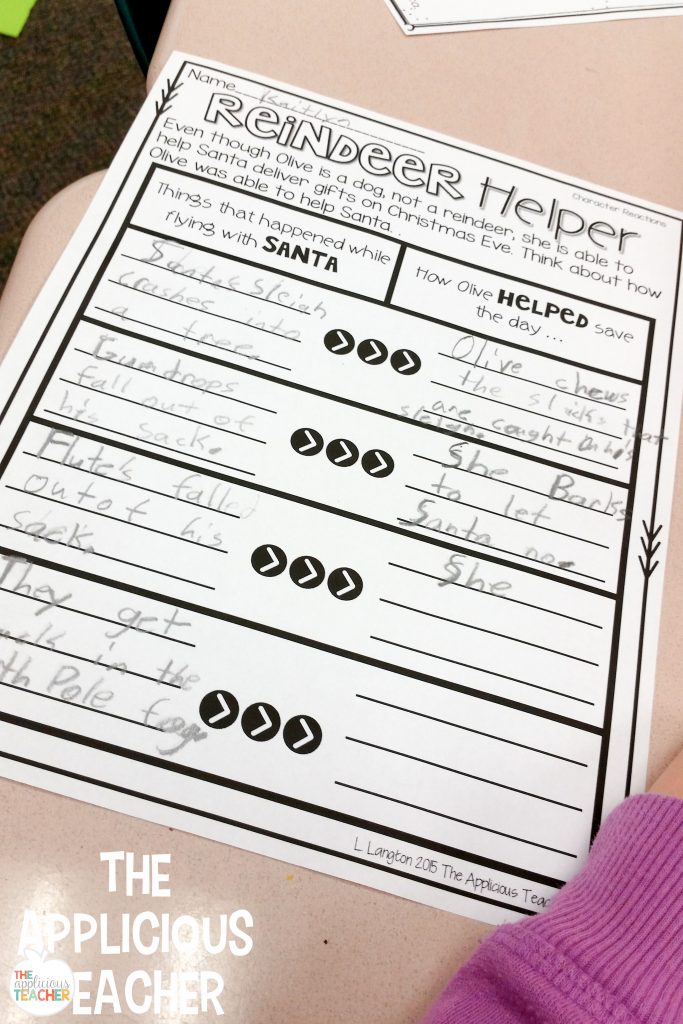 Name Kaitlyn
REINDEER Helper
Character Reactions
Even though Olive is a dog, not a reindeer, she is able to
help Santa deliver gifts on Christmas Eve. Think about how
Olive was able to help Santa...
Things that happened while
flying with SANTA
How Olive HELPED save
the day ...
Santa's sleigh
crashes into
a tree.
Olive chews
the sticks that
are caught on his
sleigh.
Gumdrops
fall out of
his sack.
She Barks
to let
Santa no.
Flutes falled
out of his
sack.
She
They get
in the
Pole fog.
L. Langton 2015 The Applicious
THE
APPLICIOUS
TEACHER
THE
applicious
TEACHER